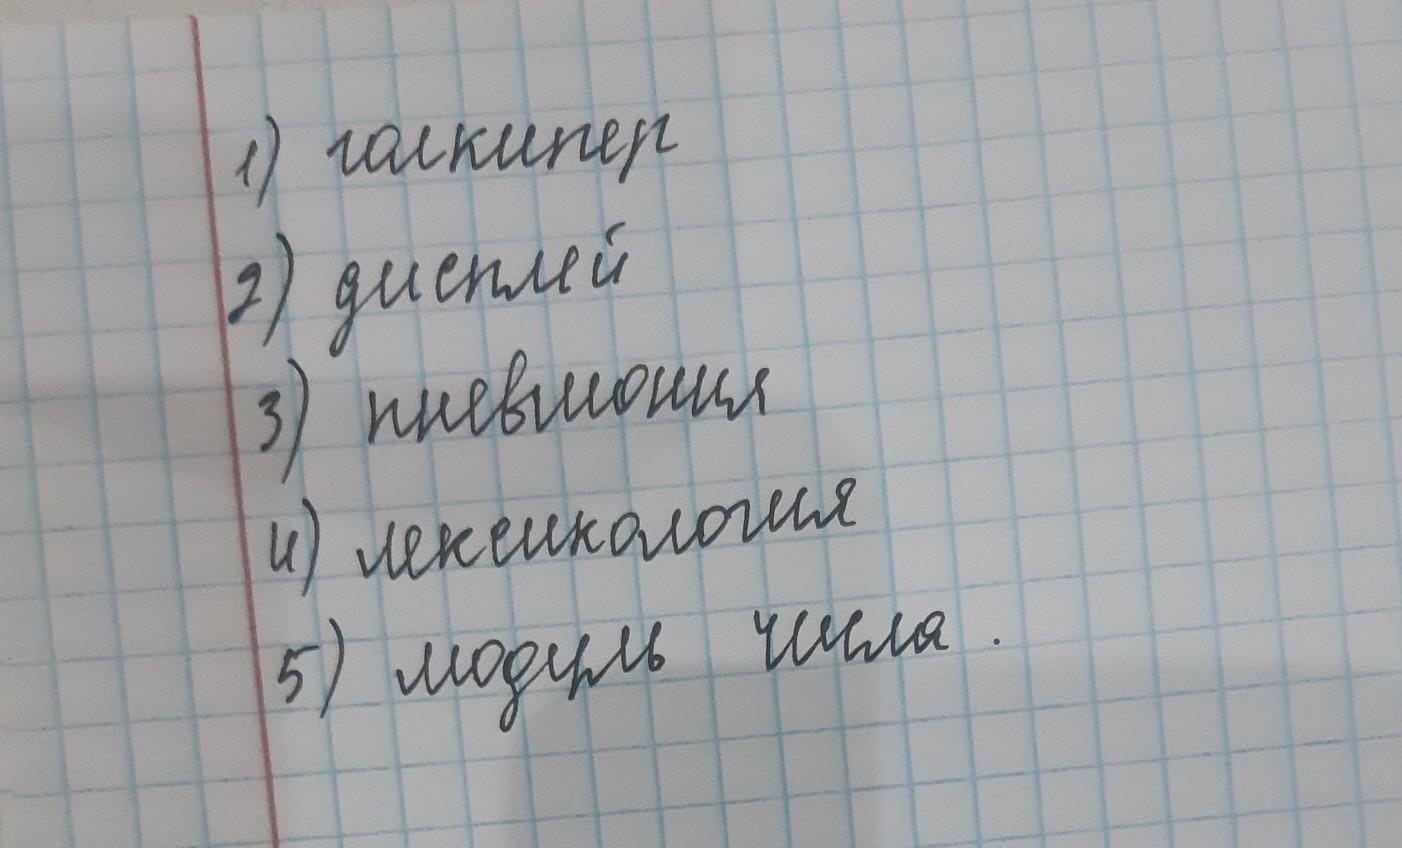 1) голкипер
2) дисплей
3) пневмония
4) лексикология
5) модуль числа.